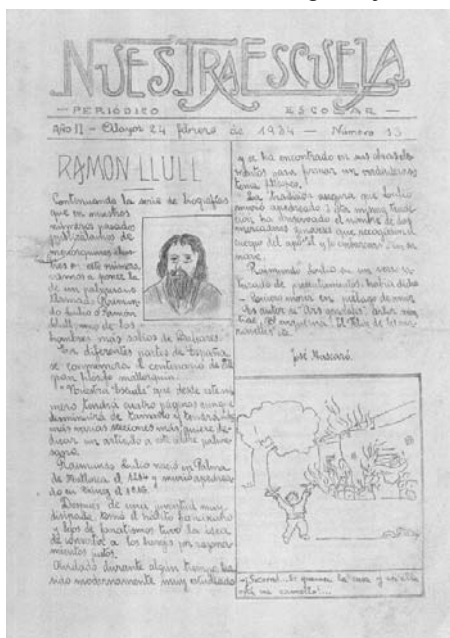 NUESTRA ESCUELA
— PERIÓDICO ESCOLAR —
Año II — Alayor 24 febrero de 1934 — Número 13
RAMON LLULL
Continuando la serie de biografías
que en nuestros
números pasados
publicábamos de
menorquines ilus-
tres en este número
vamos a poner la
de un palmesano
llamado Raimun-
do Lulio o Ramón
Llull, uno de los
hombres más sabios de Baleares.
En diferentes partes de España
se conmemora el centenario de
gran filósofo mallorquín.
"Nuestra Escuela" que desde este nú-
mero tendrá cuatro páginas aunque
disminuirá de tamaño y tendrá a
más varias secciones más quiere de-
dicar un artículo a este ilustre palme-
sano.
Raimundo Lulio nació en Palma
de Mallorca el
y murió apedrea-
do en el
Después de una juventud muy
disipada tomó el hábito franciscano
y lejos de fanatismos tuvo la idea
de convertir a los por razona-
mientos justos.
Olvidado durante algún tiempo ha
sido modernamente muy estudiado
y se ha encontrado en sus obras ele-
mentos para formar un verdadero sis-
tema filosófico.
La tradición asegura que Lulio
murió apedreado
ha conservado el nombre de dos
mercaderes que recogieron el
cuerpo del apóstol y lo embarcaron en su
nave.
Raimundo Lulio en un verso
de presentimientos, había dicho
— Quiero morir en piélago de amor.
Es autor de "Ars
José Mascaró.
—¡Socorro!... Se quema la casa y en ella
está mi camello!...